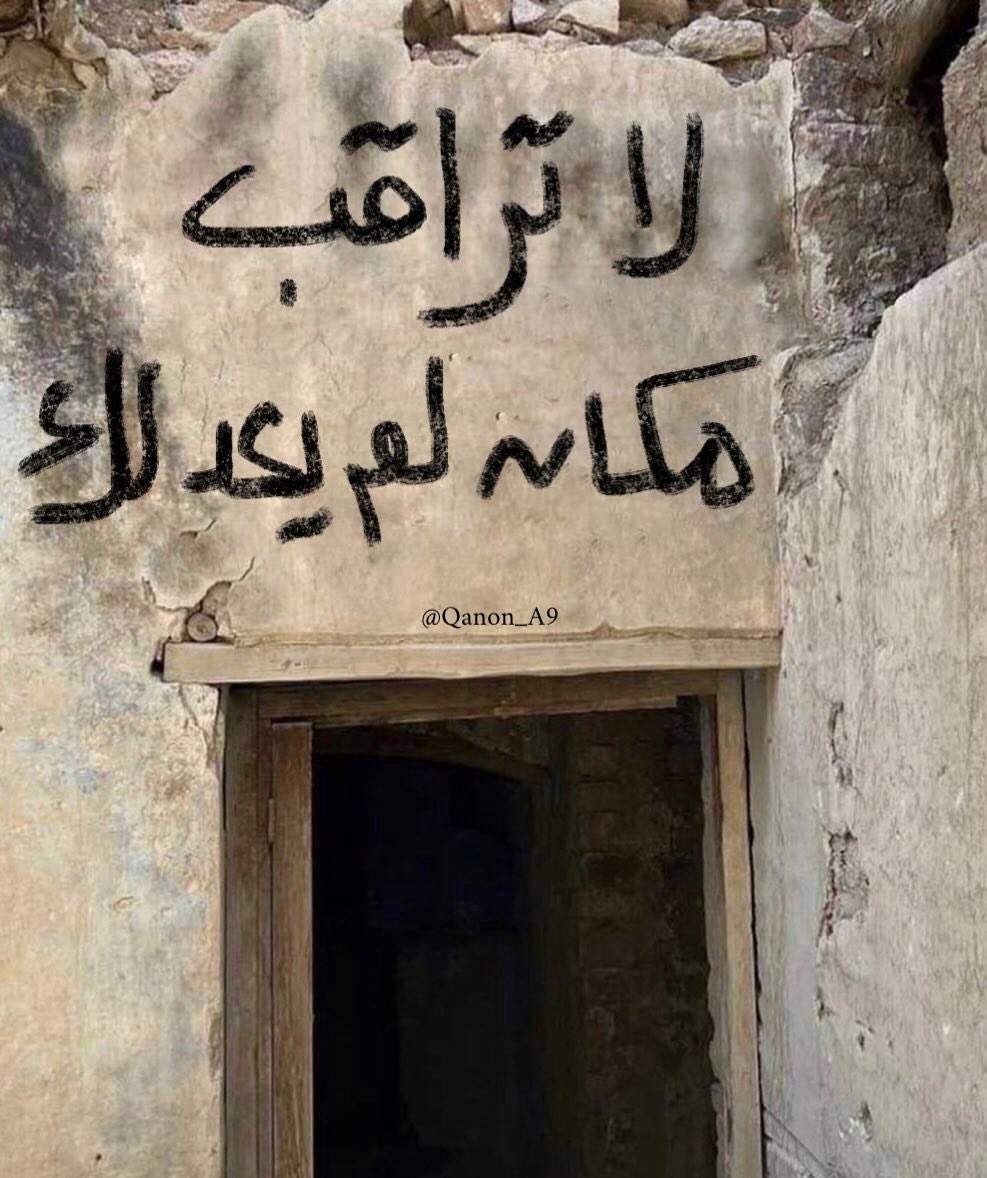 لا تراقب
مكان لم يعد لك
@Qanon_A9